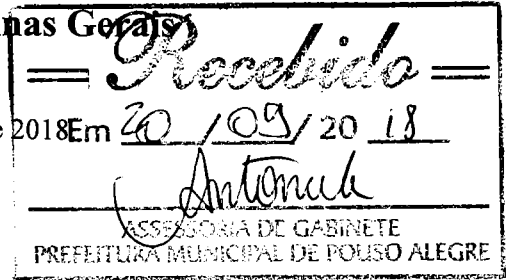 nas Gerais
Recebido
e 2018 Em 20 / 09 / 20 18
ASSESSORIA DE GABINETE
PREFEITURA MUNICIPAL DE POUSO ALEGRE